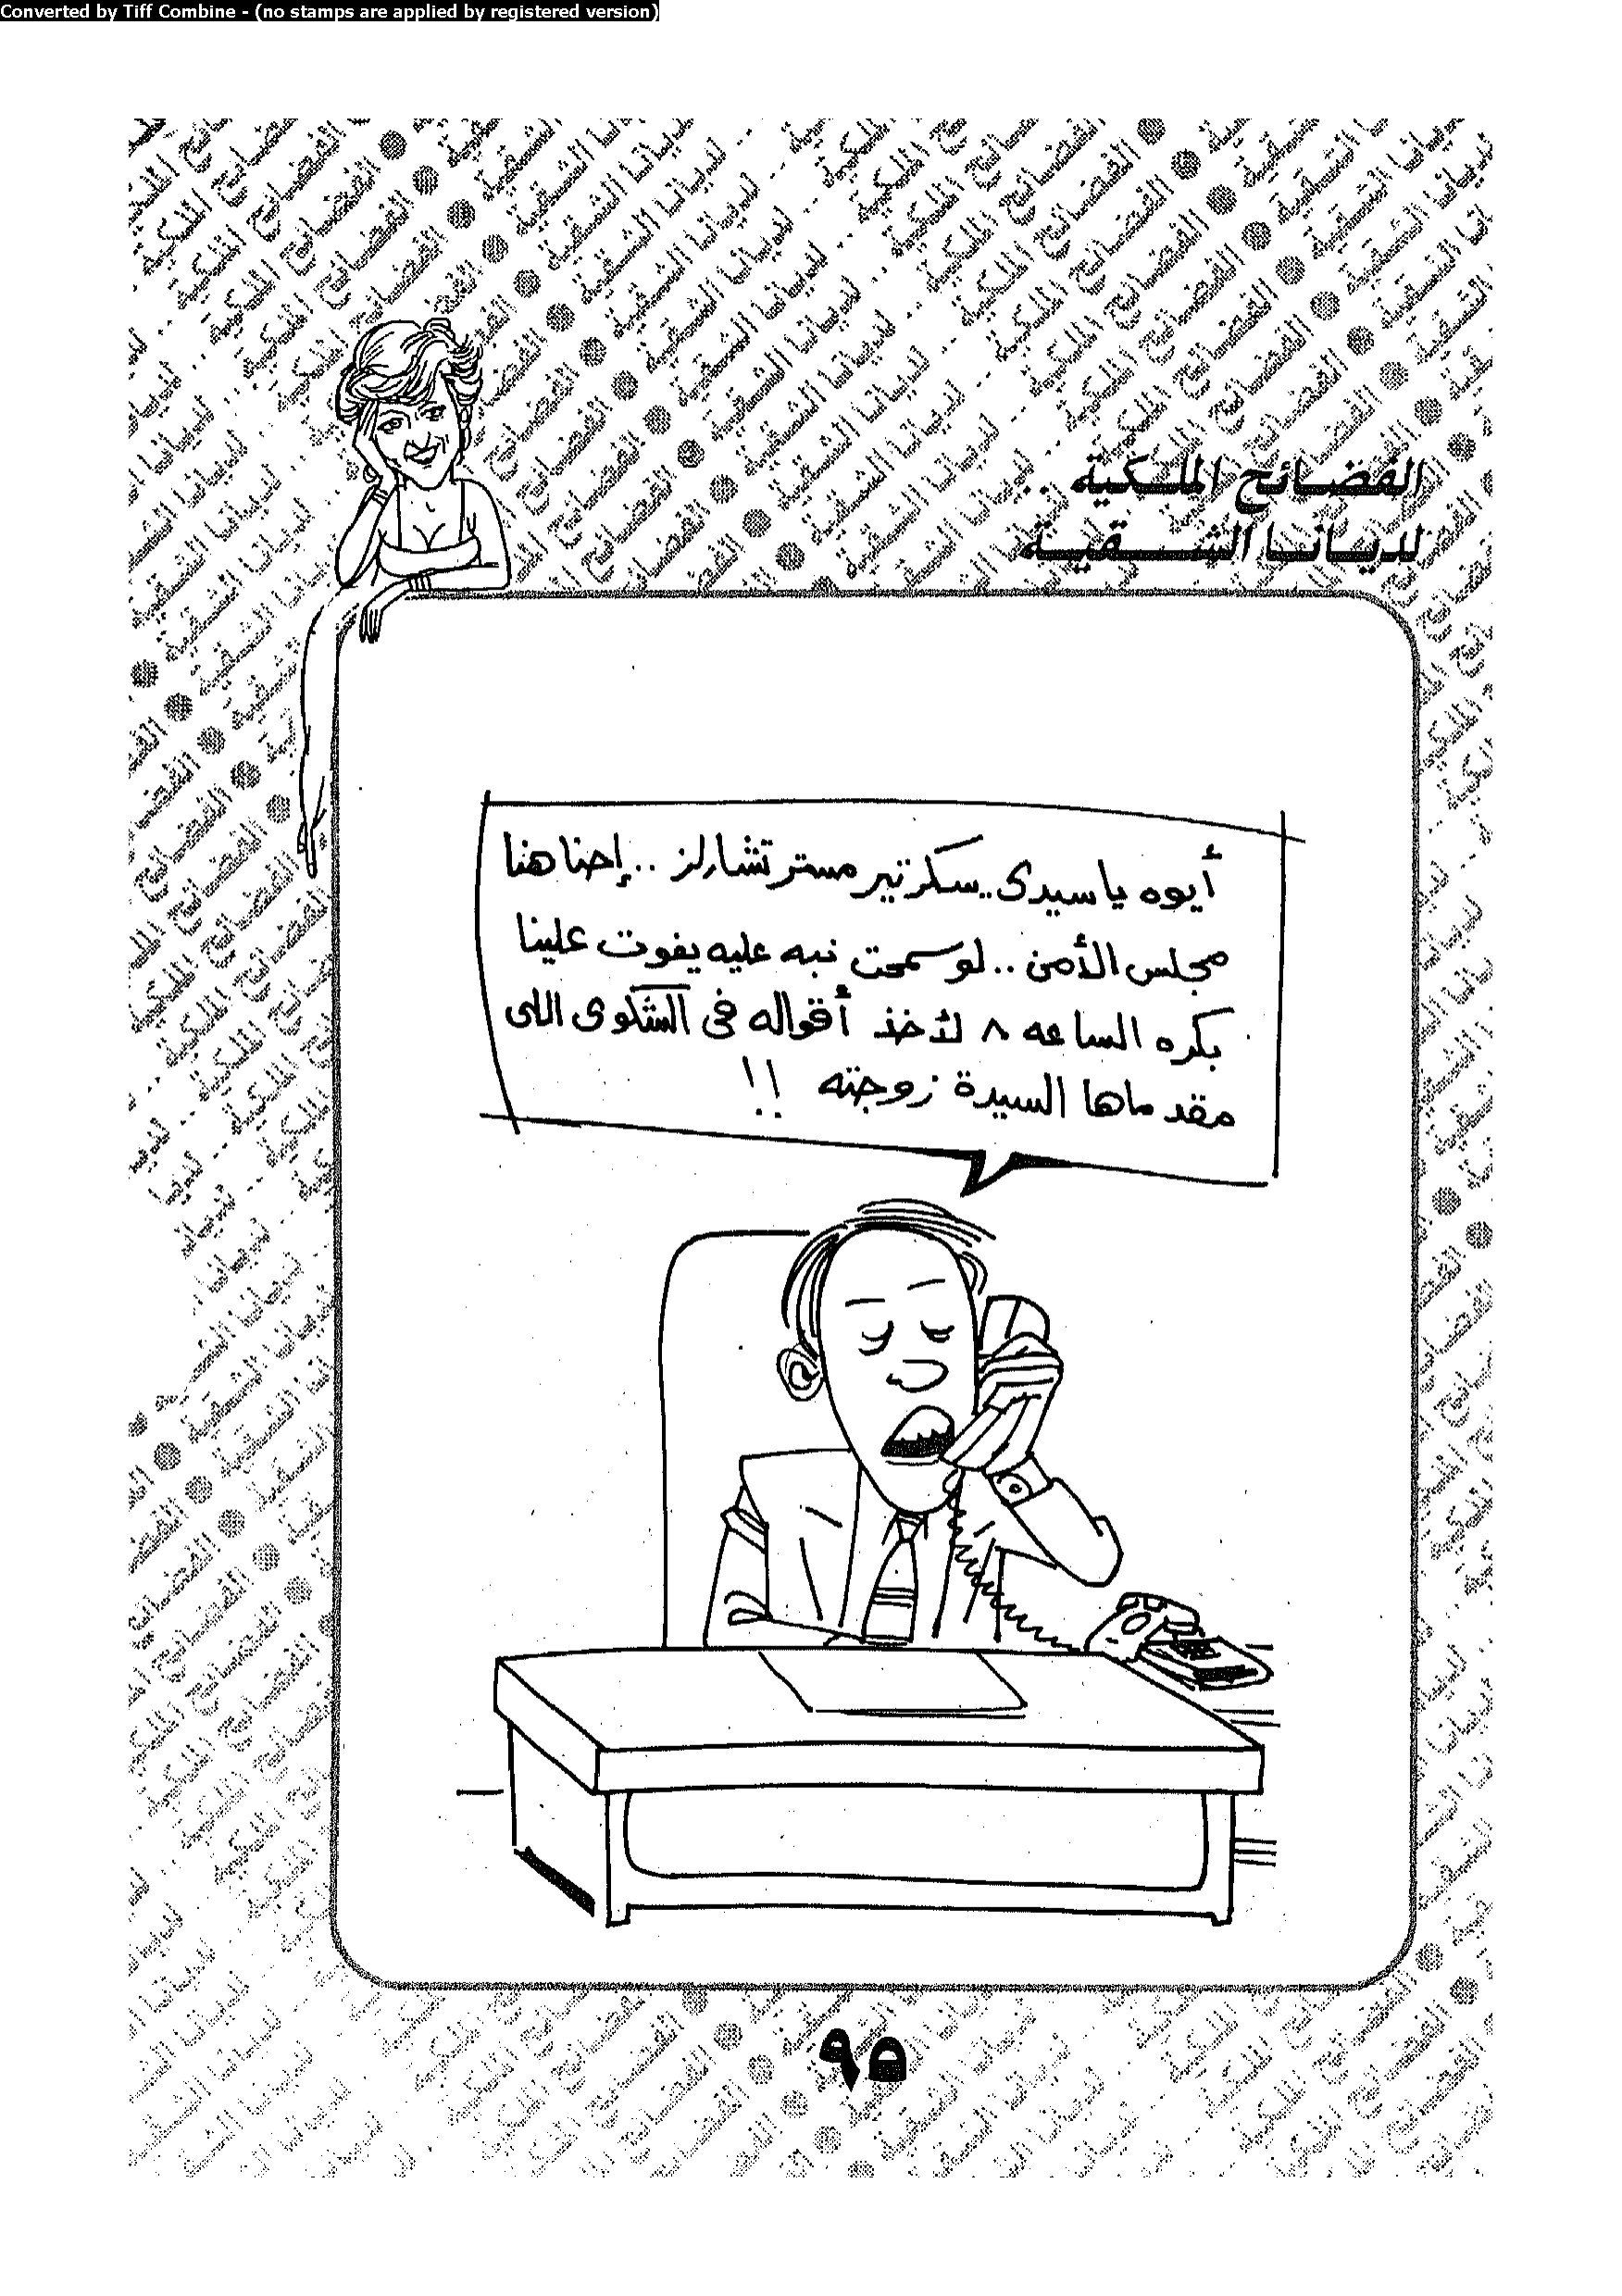 Converted by Tiff Combine - (no stamps are applied by registered version)
الفضائح الملكية ..
لديانا الشقية
أيوه يا سيدى .. سكرتير مستر تشارلز .. إحنا هنا
مجلس الأمن .. لو سمحت نبه عليه يفوت علينا
بكره الساعه ٨ لأخذ أقواله فى الشكوى اللى
مقدماها السيدة زوجته !!
٩٥